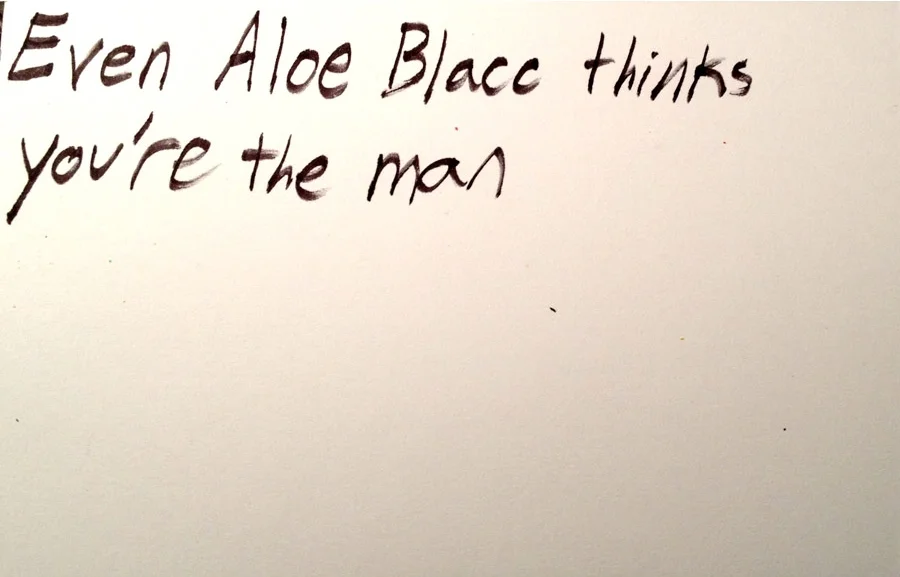 Even Aloe Blacc thinks
you're the man